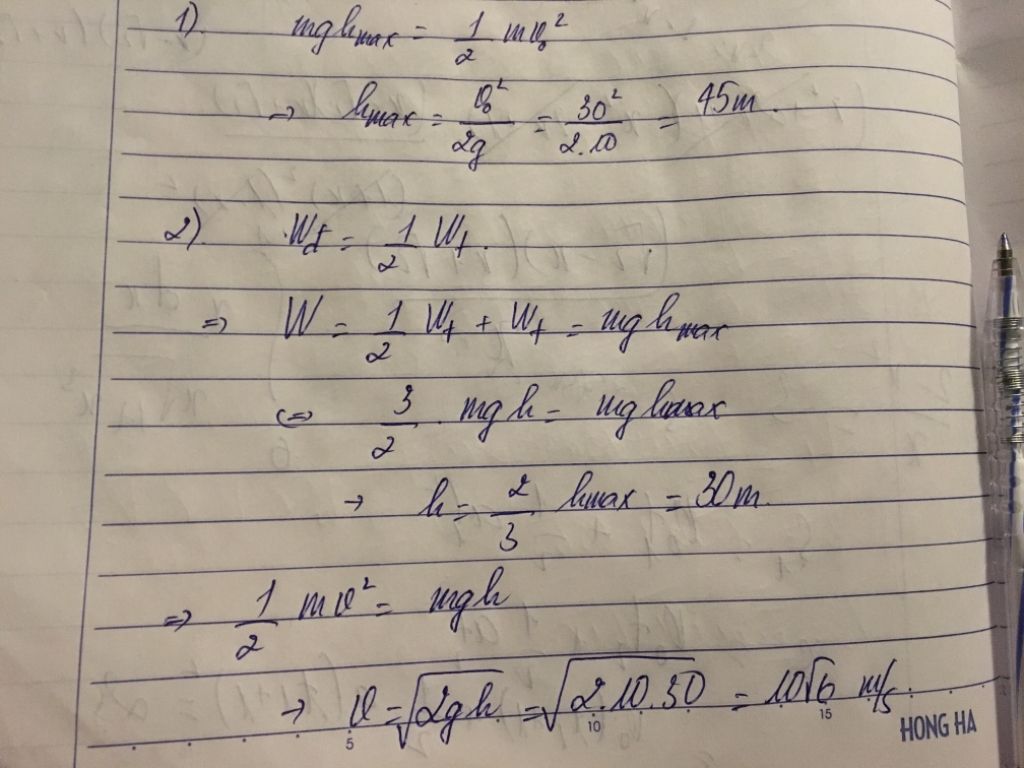 1) mgh_max = 1/2 mv₀²
→ h_max = v₀²/2g = 30²/2.10 = 45m.
2) Wđ = 1/2 Wt.
⇒ W = 1/2 Wt + Wt = mgh_max
⇔ 3/2 . mgh = mgh_max
→ h = 2/3 h_max = 30m.
⇒ 1/2 mv² = mgh
→ v = √2gh = √2.10.30 = 10√6 m/s.
5 10 15
HONG HA